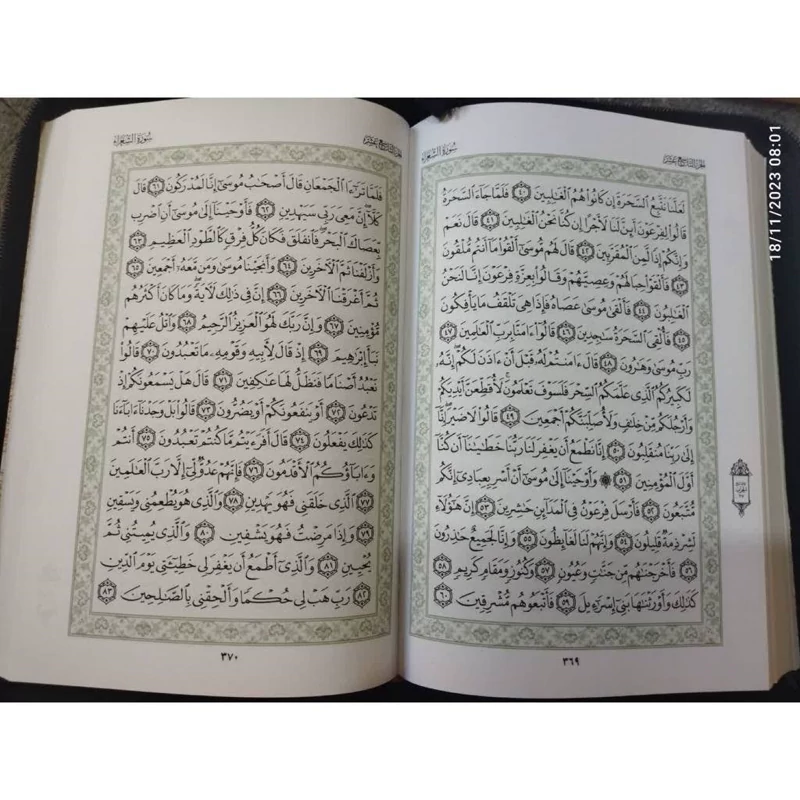 الجُزءُ التَّاسِعَ عَشَرَ
سُورَةُ الشُّعَرَاءِ
لَعَلَّنَا نَتَّبِعُ ٱلسَّحَرَةَ إِن كَانُواْ هُمُ ٱلْغَـٰلِبِينَ ٤٠ فَلَمَّا جَآءَ ٱلسَّحَرَةُ
قَالُواْ لِفِرْعَوْنَ أَئِنَّ لَنَا لَأَجْرًا إِن كُنَّا نَحْنُ ٱلْغَـٰلِبِينَ ٤١ قَالَ نَعَمْ
وَإِنَّكُمْ إِذًا لَّمِنَ ٱلْمُقَرَّبِينَ ٤٢ قَالَ لَهُم مُّوسَىٰٓ أَلْقُواْ مَآ أَنتُم مُّلْقُونَ
٤٣ فَأَلْقَوْاْ حِبَالَهُمْ وَعِصِيَّهُمْ وَقَالُواْ بِعِزَّةِ فِرْعَوْنَ إِنَّا لَنَحْنُ
ٱلْغَـٰلِبُونَ ٤٤ فَأَلْقَىٰ مُوسَىٰ عَصَاهُ فَإِذَا هِىَ تَلْقَفُ مَا يَأْفِكُونَ
٤٥ فَأُلْقِىَ ٱلسَّحَرَةُ سَـٰجِدِينَ ٤٦ قَالُوٓاْ ءَامَنَّا بِرَبِّ ٱلْعَـٰلَمِينَ ٤٧
رَبِّ مُوسَىٰ وَهَـٰرُونَ ٤٨ قَالَ ءَامَنتُمْ لَهُۥ قَبْلَ أَنْ ءَاذَنَ لَكُمْ إِنَّهُۥ
لَكَبِيرُكُمُ ٱلَّذِى عَلَّمَكُمُ ٱلسِّحْرَ فَلَسَوْفَ تَعْلَمُونَ لَأُقَطِّعَنَّ أَيْدِيَكُمْ
وَأَرْجُلَكُم مِّنْ خِلَـٰفٍ وَلَأُصَلِّبَنَّكُمْ أَجْمَعِينَ ٤٩ قَالُواْ لَا ضَيْرَ إِنَّآ
إِلَىٰ رَبِّنَا مُنقَلِبُونَ ٥٠ إِنَّا نَطْمَعُ أَن يَغْفِرَ لَنَا رَبُّنَا خَطَـٰيَـٰنَآ أَن كُنَّآ
أَوَّلَ ٱلْمُؤْمِنِينَ ٥١ ۞ وَأَوْحَيْنَآ إِلَىٰ مُوسَىٰٓ أَنْ أَسْرِ بِعِبَادِىٓ إِنَّكُم
مُّتَّبَعُونَ ٥٢ فَأَرْسَلَ فِرْعَوْنُ فِى ٱلْمَدَآئِنِ حَـٰشِرِينَ ٥٣ إِنَّ هَـٰٓؤُلَآءِ
لَشِرْذِمَةٌ قَلِيلُونَ ٥٤ وَإِنَّهُمْ لَنَا لَغَآئِظُونَ ٥٥ وَإِنَّا لَجَمِيعٌ حَـٰذِرُونَ
٥٦ فَأَخْرَجْنَـٰهُم مِّن جَنَّـٰتٍ وَعُيُونٍ ٥٧ وَكُنُوزٍ وَمَقَامٍ كَرِيمٍ ٥٨
كَذَٰلِكَ وَأَوْرَثْنَـٰهَا بَنِىٓ إِسْرَـٰٓءِيلَ ٥٩ فَأَتْبَعُوهُم مُّشْرِقِينَ ٦٠
٣٦٩
الجُزءُ التَّاسِعَ عَشَرَ
سُورَةُ الشُّعَرَاءِ
فَلَمَّا تَرَـٰٓءَا ٱلْجَمْعَانِ قَالَ أَصْحَـٰبُ مُوسَىٰٓ إِنَّا لَمُدْرَكُونَ ٦١ قَالَ
كَلَّآ إِنَّ مَعِىَ رَبِّى سَيَهْدِينِ ٦٢ فَأَوْحَيْنَآ إِلَىٰ مُوسَىٰٓ أَنِ ٱضْرِب
بِّعَصَاكَ ٱلْبَحْرَ فَٱنفَلَقَ فَكَانَ كُلُّ فِرْقٍ كَٱلطَّوْدِ ٱلْعَظِيمِ ٦٣
وَأَزْلَفْنَا ثَمَّ ٱلْـَٔاخَرِينَ ٦٤ وَأَنجَيْنَا مُوسَىٰ وَمَن مَّعَهُۥٓ أَجْمَعِينَ ٦٥
ثُمَّ أَغْرَقْنَا ٱلْـَٔاخَرِينَ ٦٦ إِنَّ فِى ذَٰلِكَ لَـَٔايَةً وَمَا كَانَ أَكْثَرُهُم
مُّؤْمِنِينَ ٦٧ وَإِنَّ رَبَّكَ لَهُوَ ٱلْعَزِيزُ ٱلرَّحِيمُ ٦٨ وَٱتْلُ عَلَيْهِمْ
نَبَأَ إِبْرَٰهِيمَ ٦٩ إِذْ قَالَ لِأَبِيهِ وَقَوْمِهِۦ مَا تَعْبُدُونَ ٧٠ قَالُواْ
نَعْبُدُ أَصْنَامًا فَنَظَلُّ لَهَا عَـٰكِفِينَ ٧١ قَالَ هَلْ يَسْمَعُونَكُمْ إِذْ
تَدْعُونَ ٧٢ أَوْ يَنفَعُونَكُمْ أَوْ يَضُرُّونَ ٧٣ قَالُواْ بَلْ وَجَدْنَآ ءَابَآءَنَا
كَذَٰلِكَ يَفْعَلُونَ ٧٤ قَالَ أَفَرَءَيْتُم مَّا كُنتُمْ تَعْبُدُونَ ٧٥ أَنتُمْ
وَءَابَآؤُكُمُ ٱلْأَقْدَمُونَ ٧٦ فَإِنَّهُمْ عَدُوٌّ لِّىٓ إِلَّا رَبَّ ٱلْعَـٰلَمِينَ
٧٧ ٱلَّذِى خَلَقَنِى فَهُوَ يَهْدِينِ ٧٨ وَٱلَّذِى هُوَ يُطْعِمُنِى وَيَسْقِينِ
٧٩ وَإِذَا مَرِضْتُ فَهُوَ يَشْفِينِ ٨٠ وَٱلَّذِى يُمِيتُنِى ثُمَّ
يُحْيِينِ ٨١ وَٱلَّذِىٓ أَطْمَعُ أَن يَغْفِرَ لِى خَطِيٓـَٔتِى يَوْمَ ٱلدِّينِ
٨٢ رَبِّ هَبْ لِى حُكْمًا وَأَلْحِقْنِى بِٱلصَّـٰلِحِينَ ٨٣
٣٧٠
18/11/2023 08:01